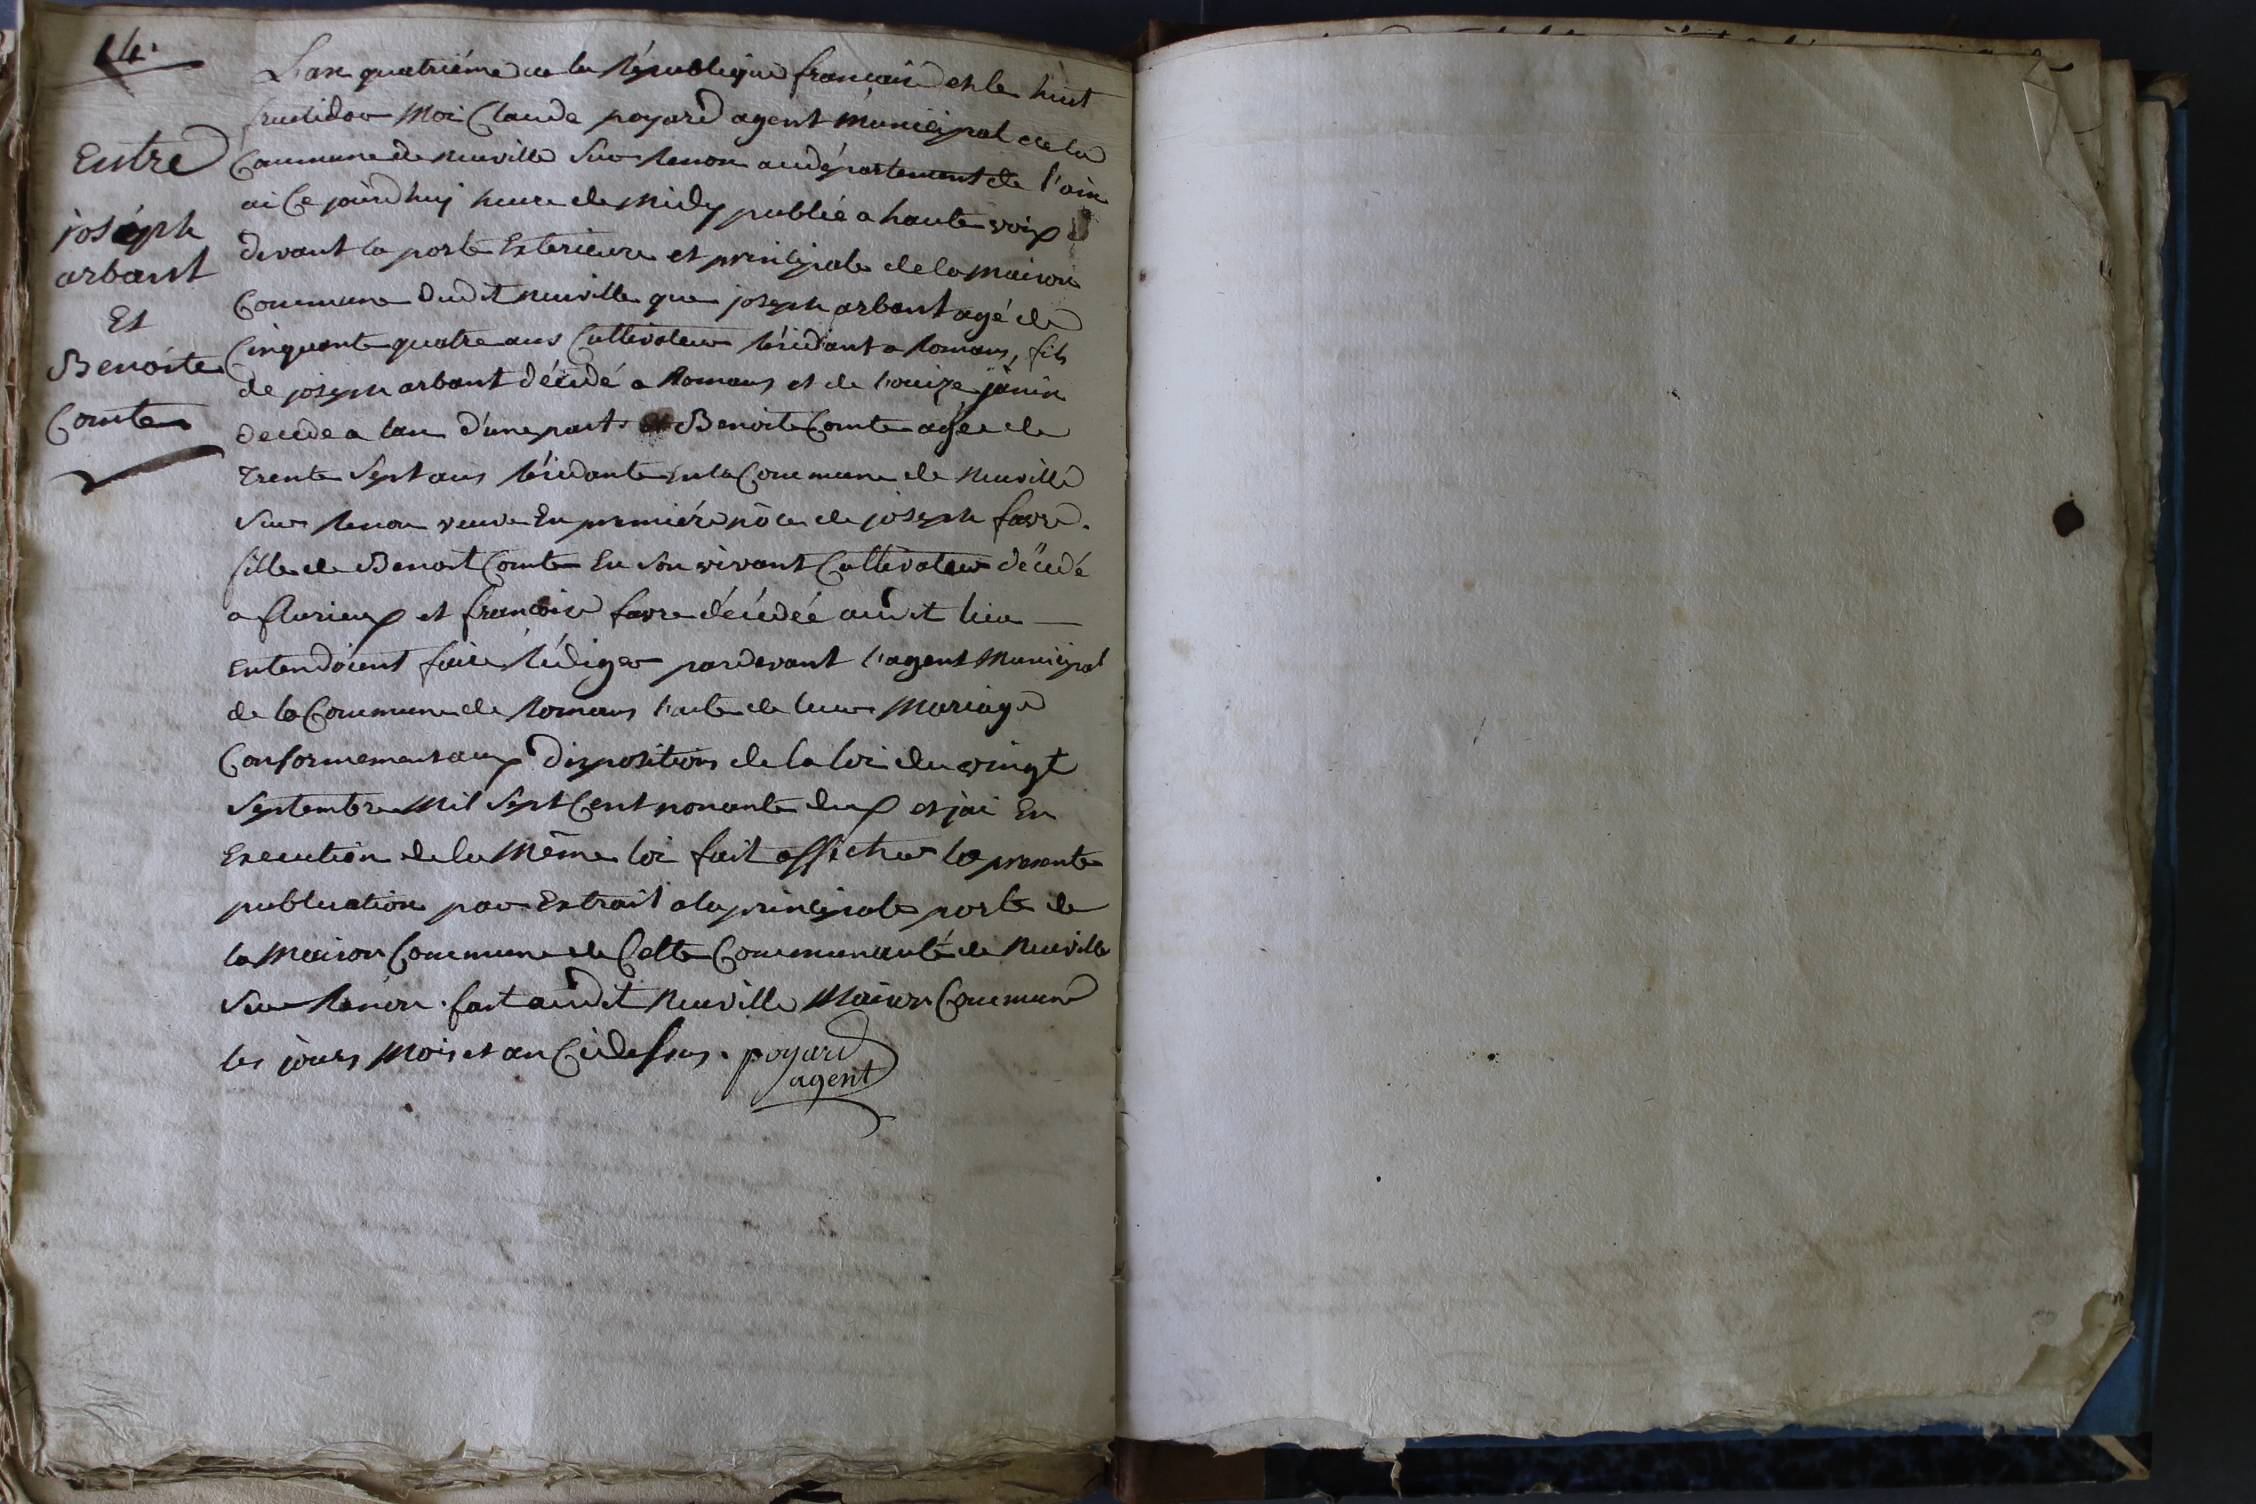 14.
Entre
joséph
arbant
Et
Benoite
Comte
L'an quatriéme de la République francaise et le huit
fructidor Moi Claude poyard agent Municipal de la
Commune de neuville Sur Renon au département de l'ain
ai Ce jourd'huj heure de Midy publié a haute voix
devant la porte Exterieure et principale de la Maison
Commune dudit neuville que joseph arbant agé de
Cinquante quatre ans Cultivateur résidant a Romans, fils
de joseph arbant décédé a Romans et de Louize janin
decede a d'une part. Et Benoite Comte agée de
trente Sept ans résidante En la Commune de neuville
Sur Renon veuve En premiére nôce de joseph favre.
fille de Benoit Comte En Son vivant Cultivateur décédé
a flurieux et francoise favre décédée audit lieu
Entendoient faire Rédiger pardevant l'agent Municipal
de la Commune de Romans l'acte de leur Mariage
Conformement aux Dispositions de la loi du vingt
Septembre Mil Sept Cent nonante deux et jai En
Execution de la Même loi fait afficher la presente
publication par Extrait a la principale porte de
la Maison Commune de Cette Communauté de Neuville
Sur Renon. fait audit Neuville Maison Commune
les jours Mois et an Cidessus. poyard
agent